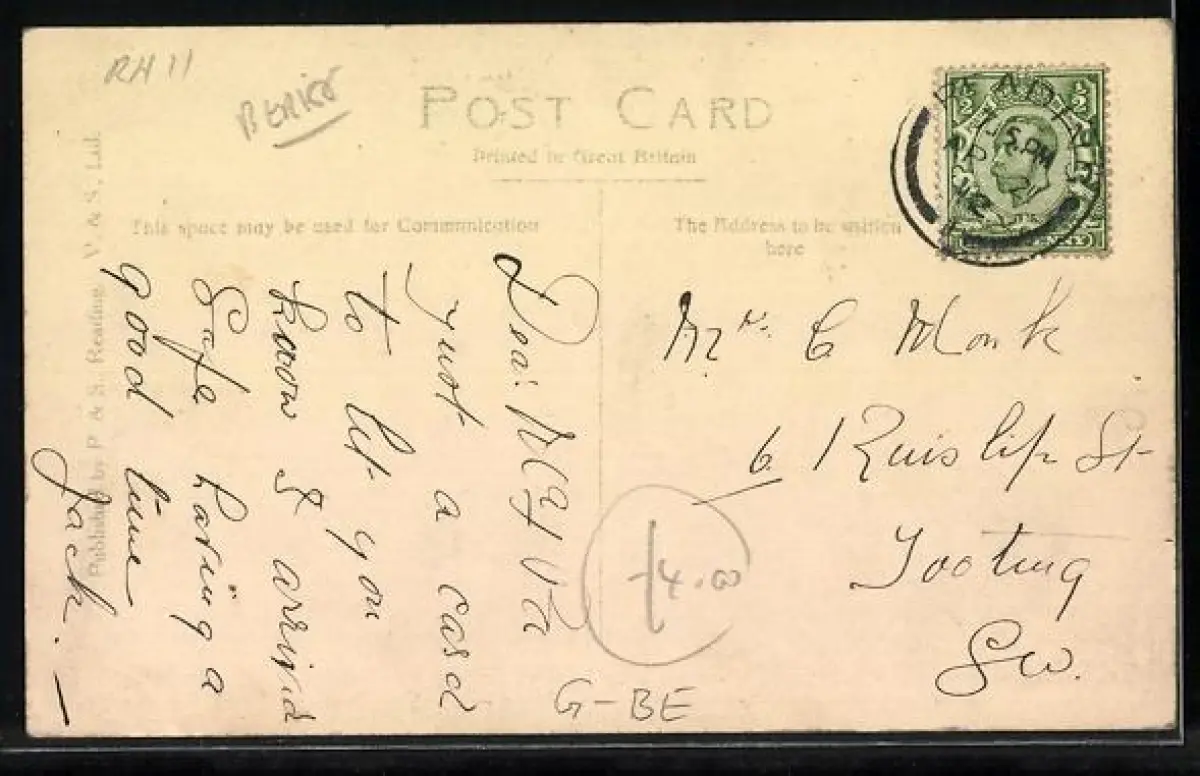 RH 11
BERKS
POST CARD
Printed in Great Britain
This space may be used for Communication
The Address to be written
here
READING
5 PM
AP
12
Published by P & S., Reading, V. & S., Ltd.
Dear
just a card
to let you
know I arrived
safe having a
good time
Jack. —
Mrs. C Monk
6 Ruislip St
Tooting
SW.
4.00
G-BE